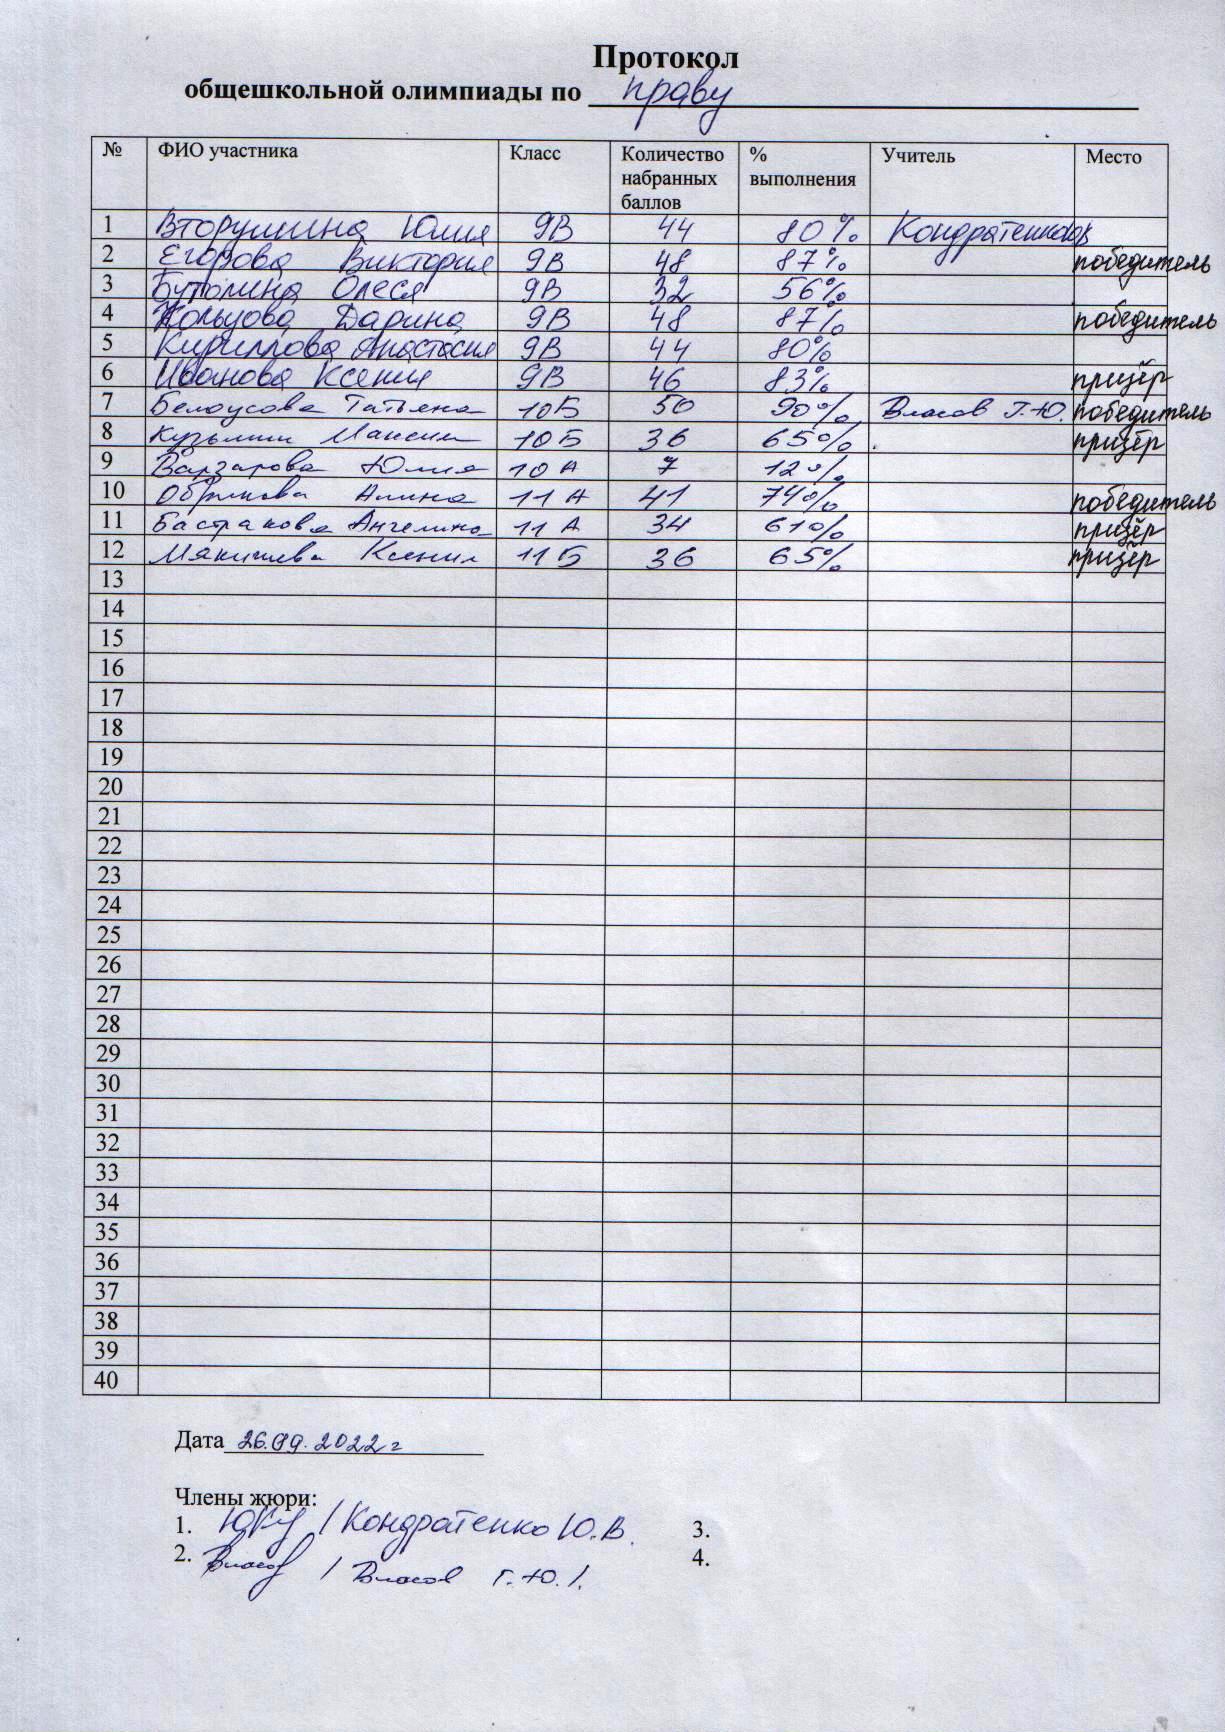 Протокол
общешкольной олимпиады по праву
№ ФИО участника Класс Количество набранных баллов % выполнения Учитель Место
1 Вторушина Юлия 9В 44 80% Кондратенко Ю.В.
2 Егорова Виктория 9В 48 87% победитель
3 Бутолина Олеся 9В 32 56%
4 Кольцова Дарина 9В 48 87% победитель
5 Кириллова Анастасия 9В 44 80%
6 Иванова Ксения 9В 46 83% призёр
7 Белоусова Татьяна 10Б 50 90% Власов Г.Ю. победитель
8 Кузьмин Максим 10Б 36 65% призёр
9 Варзарова Юлия 10А 7 12%
10 Алина 11А 41 74% победитель
11 Бастракова Ангелина 11А 34 61% призёр
12 Мякишева Ксения 11Б 36 65% призёр
13
14
15
16
17
18
19
20
21
22
23
24
25
26
27
28
29
30
31
32
33
34
35
36
37
38
39
40
Дата 26.09.2022 г
Члены жюри:
1. / Кондратенко Ю.В. 3.
2. Власов / Власов Г.Ю. /. 4.